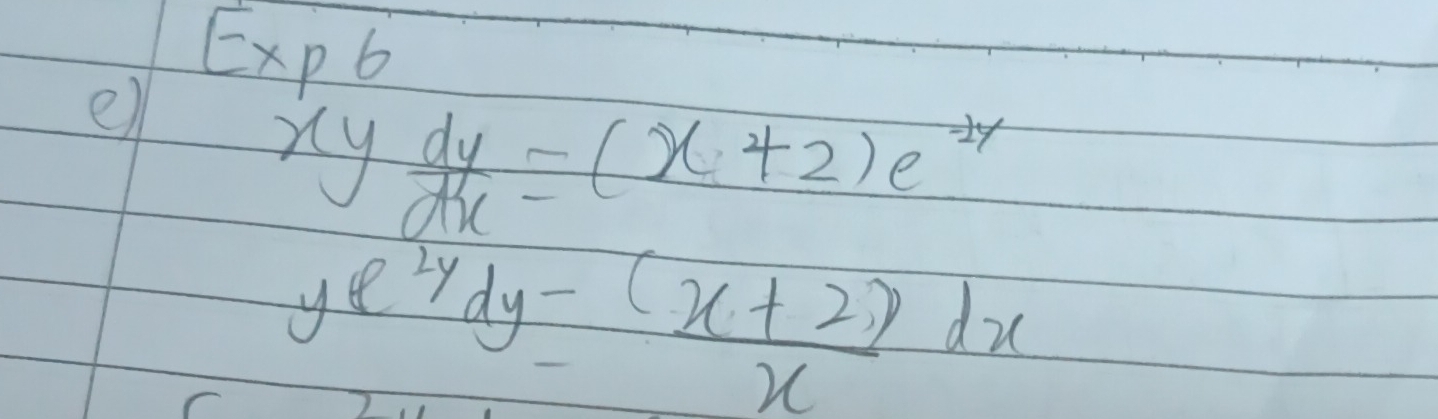 Exp 6
e) xy dy/dx = (x + 2) e^-2y
y e^2y dy = (x + 2)/x dx